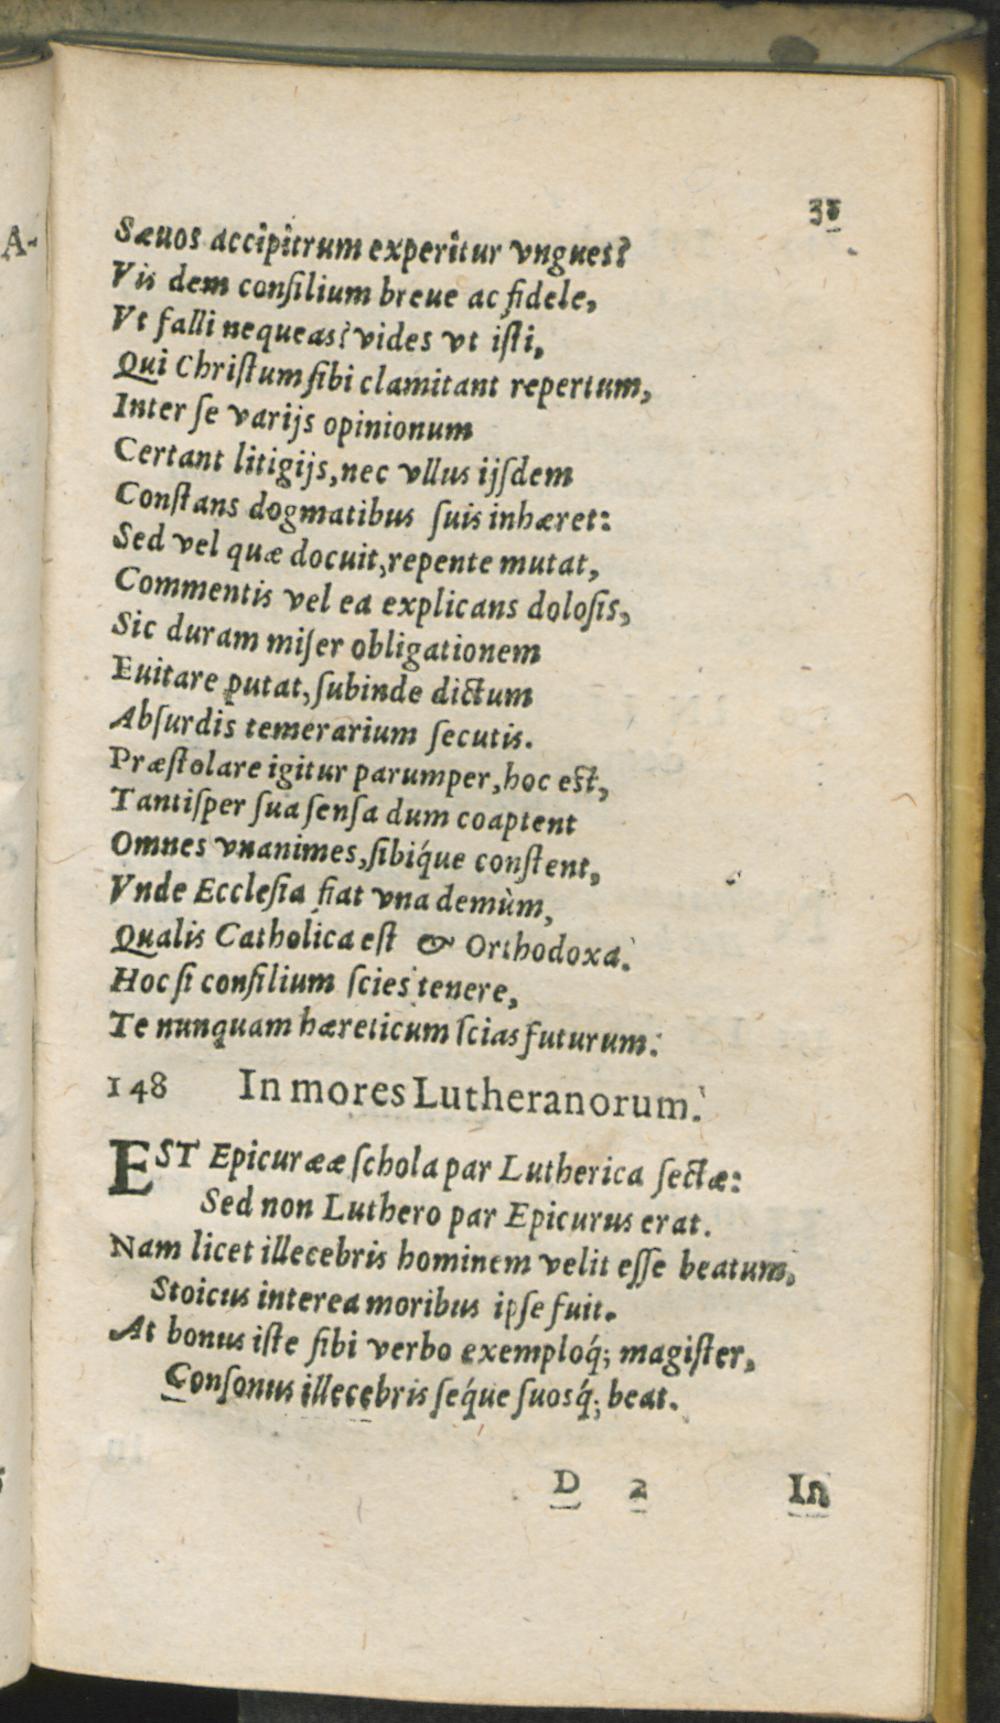 A-
Sæuos accipitrum experitur vngues?
Vis dem conſilium breue ac fidele,
Vt falli nequeas? vides vt iſti,
Qui Chriſtum ſibi clamitant repertum,
Inter ſe varijs opinionum
Certant litigijs, nec vllus ijſdem
Conſtans dogmatibus ſuis inhæret:
Sed vel quæ docuit, repente mutat,
Commentis vel ea explicans doloſis,
Sic duram miſer obligationem
Euitare putat, ſubinde dictum
Abſurdis temerarium ſecutis.
Præſtolare igitur parumper, hoc est,
Tantiſper ſua ſenſa dum coaptent
Omnes vnanimes, ſibíque conſtent,
Vnde Eccleſia fiat vna demùm,
Qualis Catholica eſt & Orthodoxa.
Hoc ſi conſilium ſcies tenere,
Te nunquam hæreticum ſcias futurum.
148 In mores Lutheranorum.
EST Epicurææ ſchola par Lutherica ſectæ:
Sed non Luthero par Epicurus erat.
Nam licet illecebris hominem velit eſſe beatum,
Stoicus interea moribus ipſe fuit.
At bonus iſte ſibi verbo exemploq́; magiſter,
Conſonus illecebris ſéque ſuosq́; beat.
D 2 In